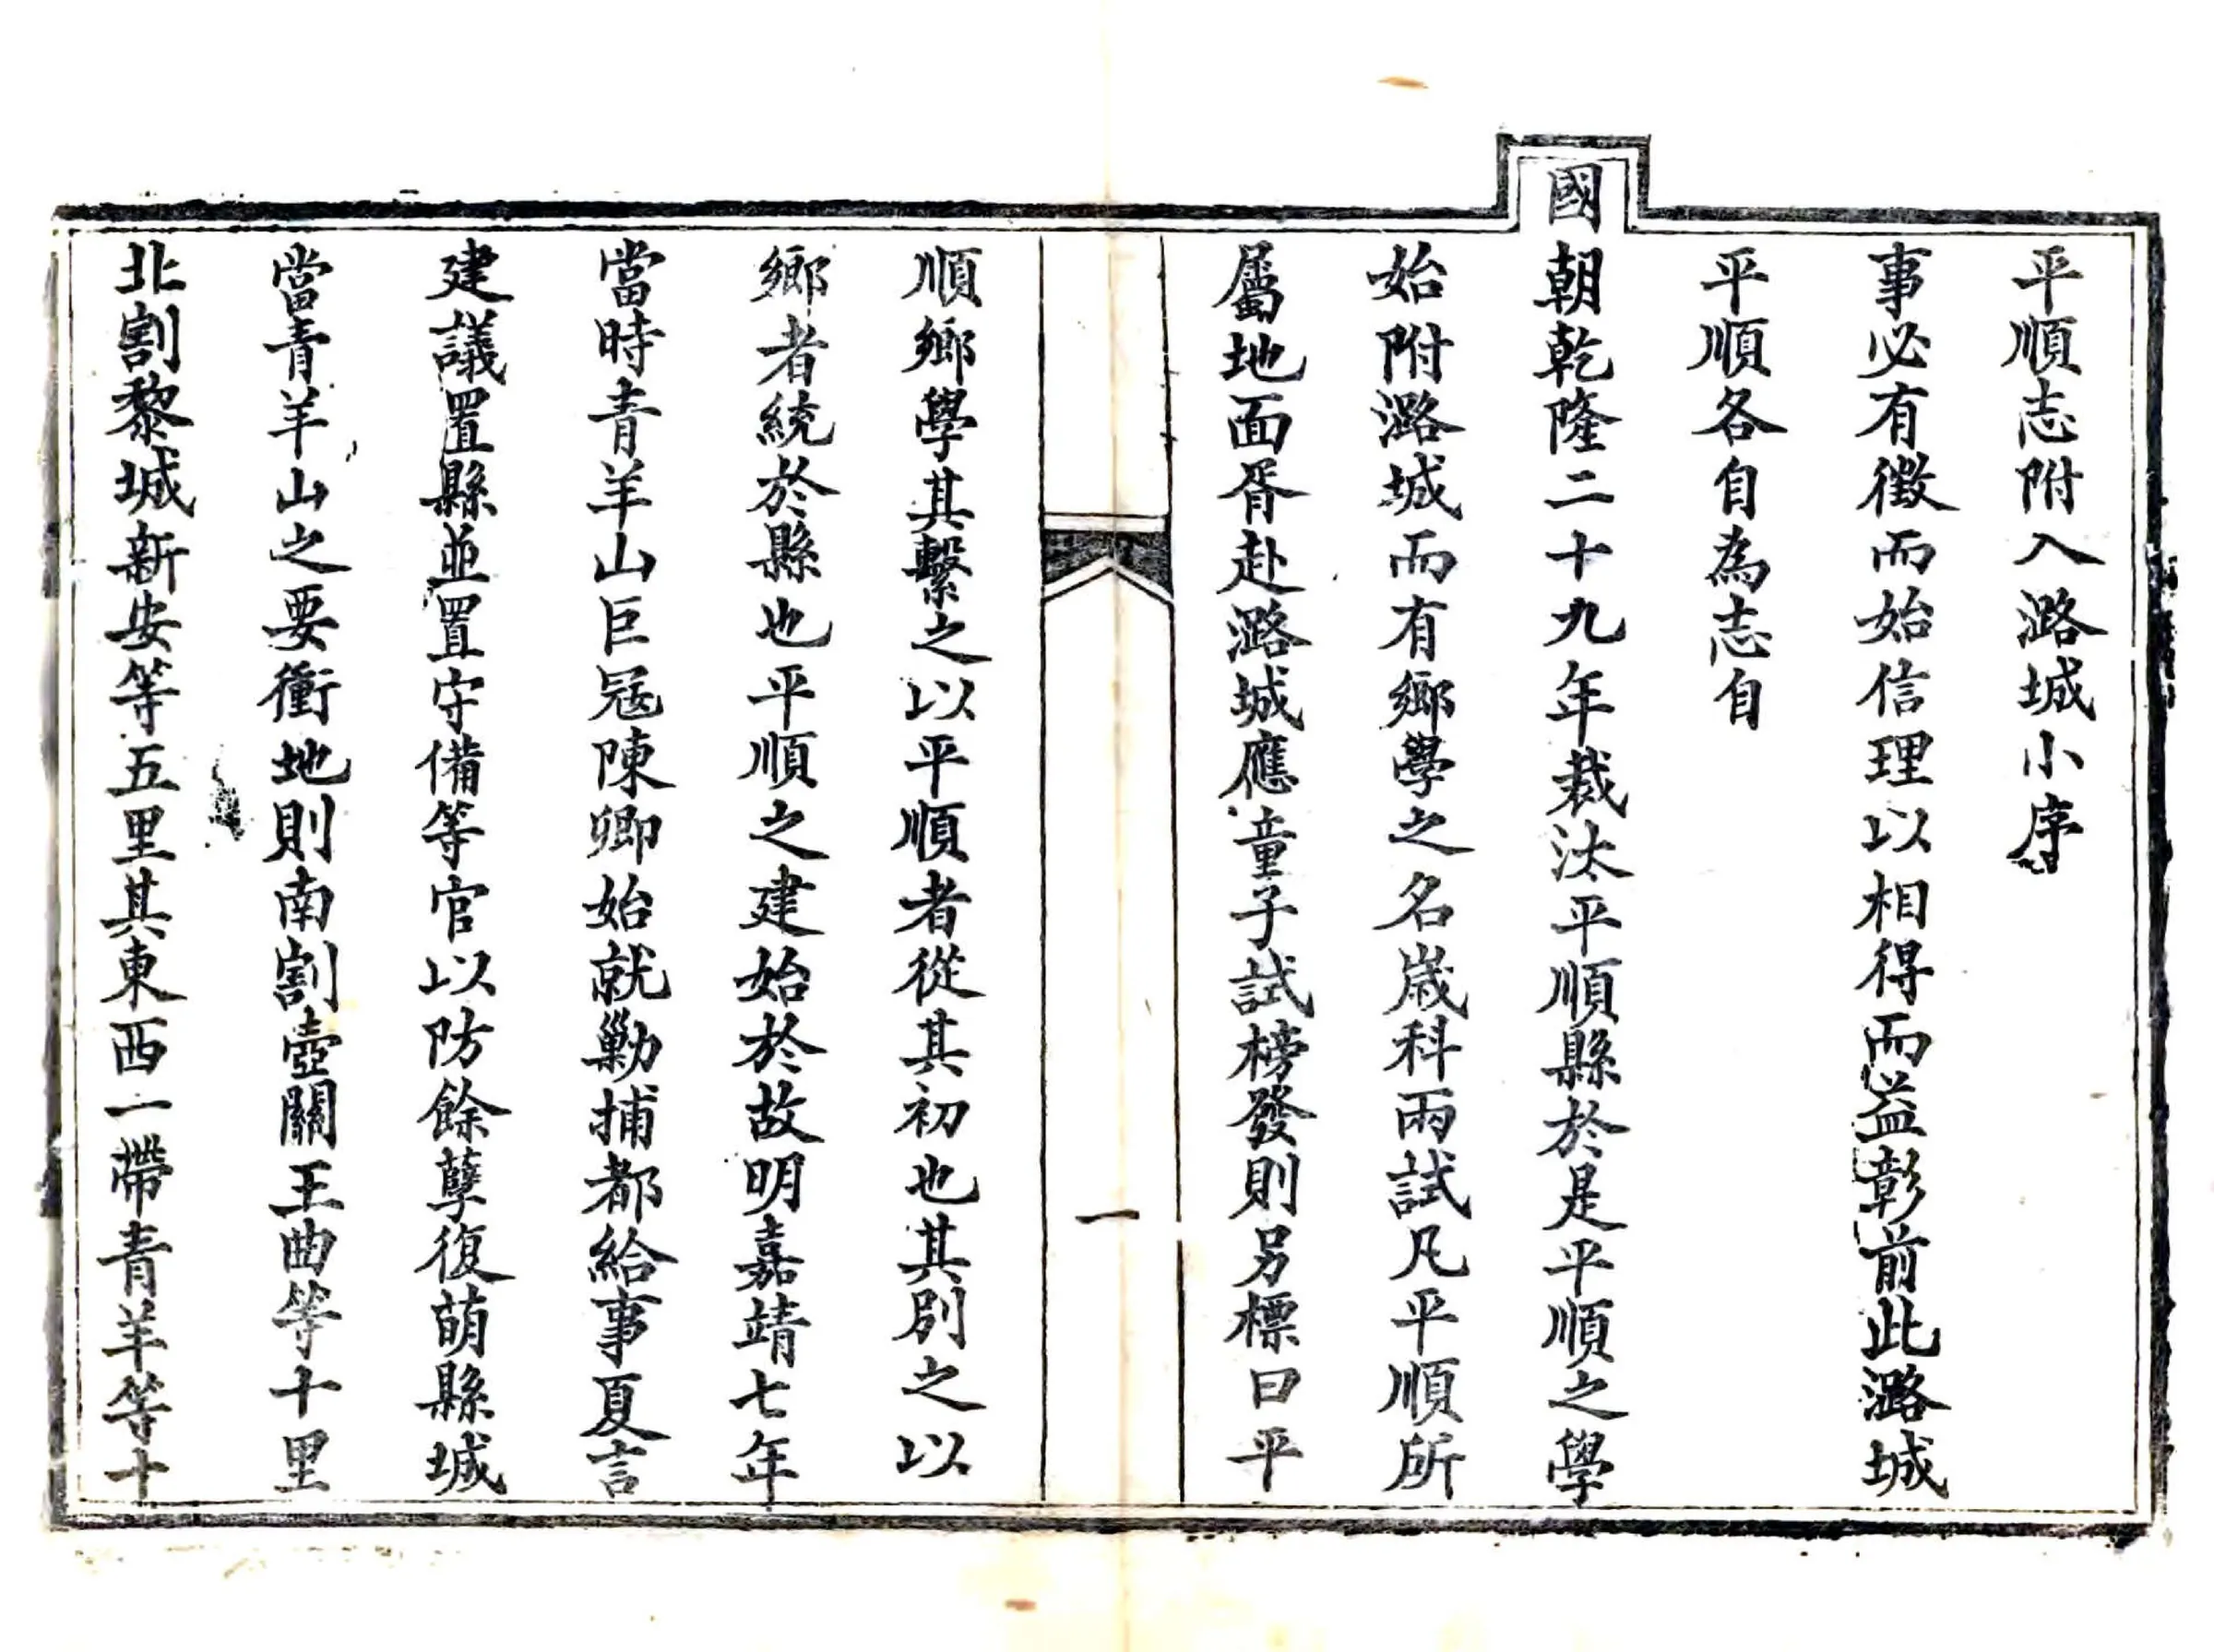 平順志附入潞城小序
事必有徵而始信理以相得而益彰前此潞城
平順各自為志自
國朝乾隆二十九年裁汰平順縣於是平順之學
始附潞城而有鄉學之名歲科兩試凡平順所
屬地面胥赴潞城應童子試榜發則另標曰平
一
順鄉學其繫之以平順者從其初也其別之以
鄉者統於縣也平順之建始於故明嘉靖七年
當時青羊山巨冦陳卿始就勦捕都給事夏言
建議置縣並置守備等官以防餘孽復萌縣城
當青羊山之要衝地則南割壺關王曲等十里
北割黎城新安等五里其東西一帶青羊等十